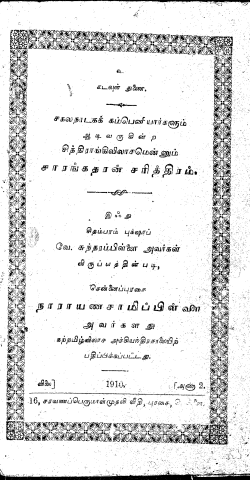 உ
கடவுள் துணை.
சகலநாடகக் கம்பெனியார்களும்
ஆடிவருகின்ற
சித்திராங்கிவிலாசமென்னும்
சாரங்கதரன் சரித்திரம்.
இஃது
சிதம்பரம் புக்ஷாப்
வே. சுந்தரப்பிள்ளை அவர்கள்
விருப்பத்தின்படி,
சென்னைப்புரசை
நாராயணசாமிப்பிள்ளை
அவர்களது
கற்றமிழ்விலாச அச்சியந்திரசாலையிற்
பதிப்பிக்கப்பட்டது.
விலை] 1910. [அணா 2.
16, சரவணப்பெருமாள்முதலி வீதி, புரசை,